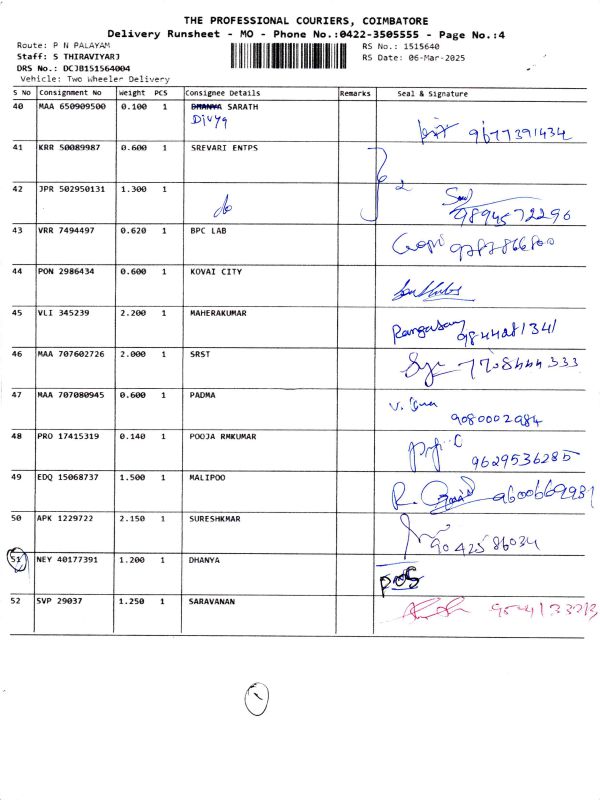 THE PROFESSIONAL COURIERS, COIMBATORE
Delivery Runsheet - MO - Phone No.:0422-3505555 - Page No.:4
Route: P N PALAYAM
RS No.: 1515640
Staff: S THIRAVIYARJ
RS Date: 06-Mar-2025
DRS No.: DCJB151564004
Vehicle: Two Wheeler Delivery
S No Consignment No Weight PCS Consignee Details Remarks Seal & Signature
40 MAA 650909500 0.100 1 DHANYA SARATH
Divya
9677391434
41 KRR 50089987 0.600 1 SREVARI ENTPS
42 JPR 502950131 1.300 1
do 2
9894572296
43 VRR 7494497 0.620 1 BPC LAB
Gopi 9787866800
44 PON 2986434 0.600 1 KOVAI CITY
45 VLI 345239 2.200 1 MAHERAKUMAR
Rangasamy
9844281341
46 MAA 707602726 2.000 1 SRST
7708444333
47 MAA 707080945 0.600 1 PADMA
9080002984
48 PRO 17415319 0.140 1 POOJA RMKUMAR
9629536285
49 EDQ 15068737 1.500 1 MALIPOO
9600669981
50 APK 1229722 2.150 1 SURESHKMAR
9042586034
51 NEY 40177391 1.200 1 DHANYA
POS
52 SVP 29037 1.250 1 SARAVANAN